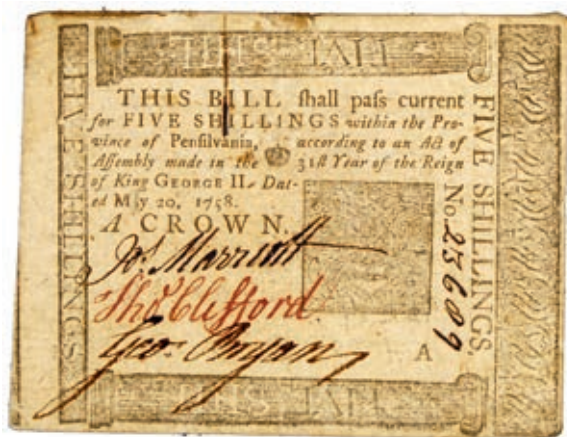 THIS BILL shall pass current
for FIVE SHILLINGS within the Pro-
vince of Pensilvania, according to an Act of
Assembly made in the 31st Year of the Reign
of King GEORGE II. Dat-
ed May 20, 1758.
A CROWN.
Jos. Marriott
Tho. Clifford
Geo. Bryan
A
FIVE SHILLINGS.
No. 23609
FIVE SHILLINGS